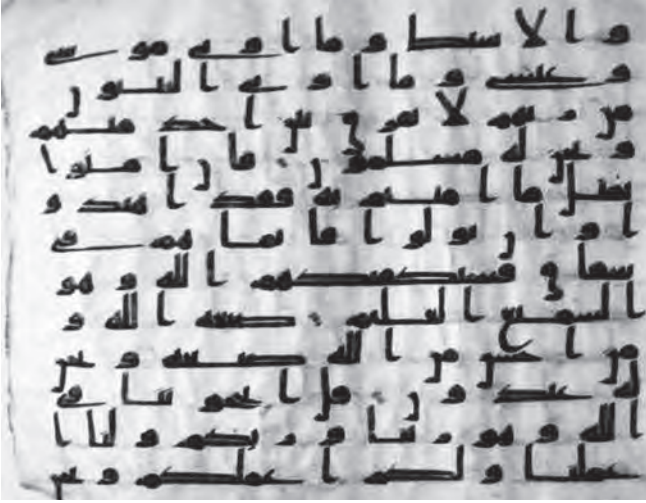 والاسبط وما اوتي موسى
وعيسى وما اوتي النبيون
من ربهم لا نفرق بين احد منهم
ونحن له مسلمون فان امنوا
بمثل ما امنتم به فقد اهتدو
ا وان تولوا فانما هم في
شقاق فسيكفيكهم الله وهو
السميع العليم صبغه الله و
من احسن من الله صبغه ونحن
له عبدون قل اتحجوننا في
الله وهو ربنا وربكم ولنا ا
عملنا ولكم اعملكم ونحن